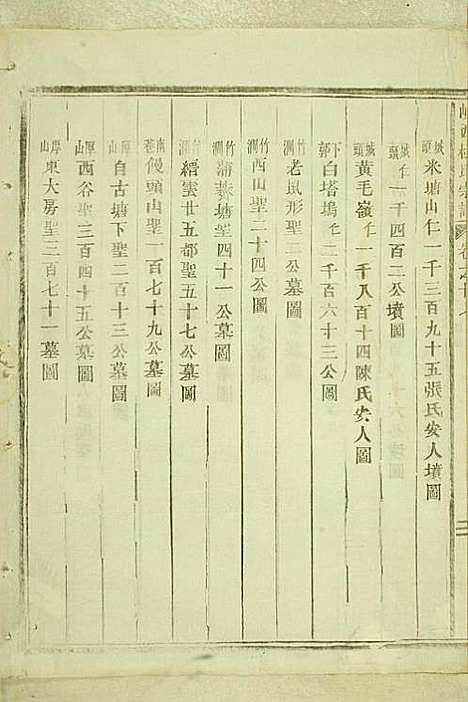 城頭米塘山仁一千三百九十五張氏安人墳圖
城頭仁一千四百二公墳圖
城頭黃毛嶺仁一千八百十四陳氏安人圖
下郭白塔塢仁二千百六十三公圖
竹澗老鼠形聖二公墓圖
竹澗西山聖二十四公圖
竹澗蒲蓑塘聖四十一公墓圖
竹澗縉雲廿五都聖五十七公墓圖
南巷饅頭山聖一百七十九公墓圖
自古塘下聖二百十三公墓圖
厚山西谷聖三百四十五公墓圖
厚山東大房聖三百七十一墓圖